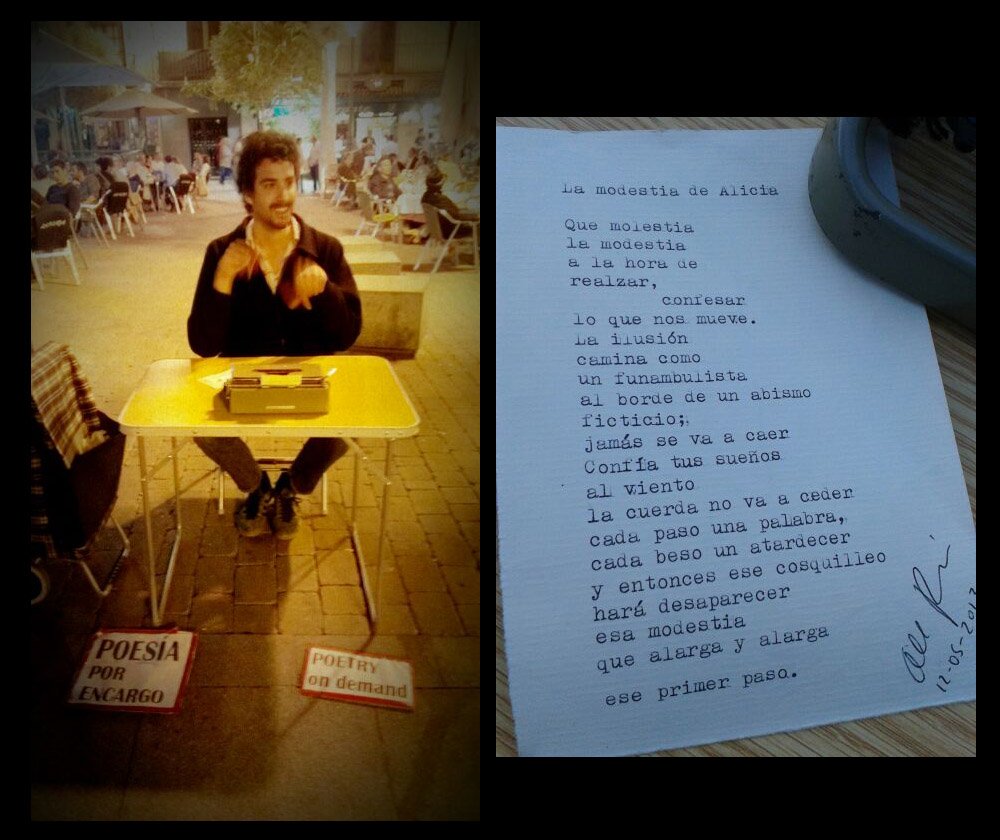 POESÍA
POR
ENCARGO
POETRY
on demand
La modestia de Alicia
Que molestia
la modestia
a la hora de
realzar,
confesar
lo que nos mueve.
La ilusión
camina como
un funambulista
al borde de un abismo
ficticio;,
jamás se va a caer
Confía tus sueños
al viento
la cuerda no va a ceder
cada paso una palabra,
cada beso un atardecer
y entonces ese cosquilleo
hará desaparecer
esa modestia
que alarga y alarga
ese primer paso.
12-05-201